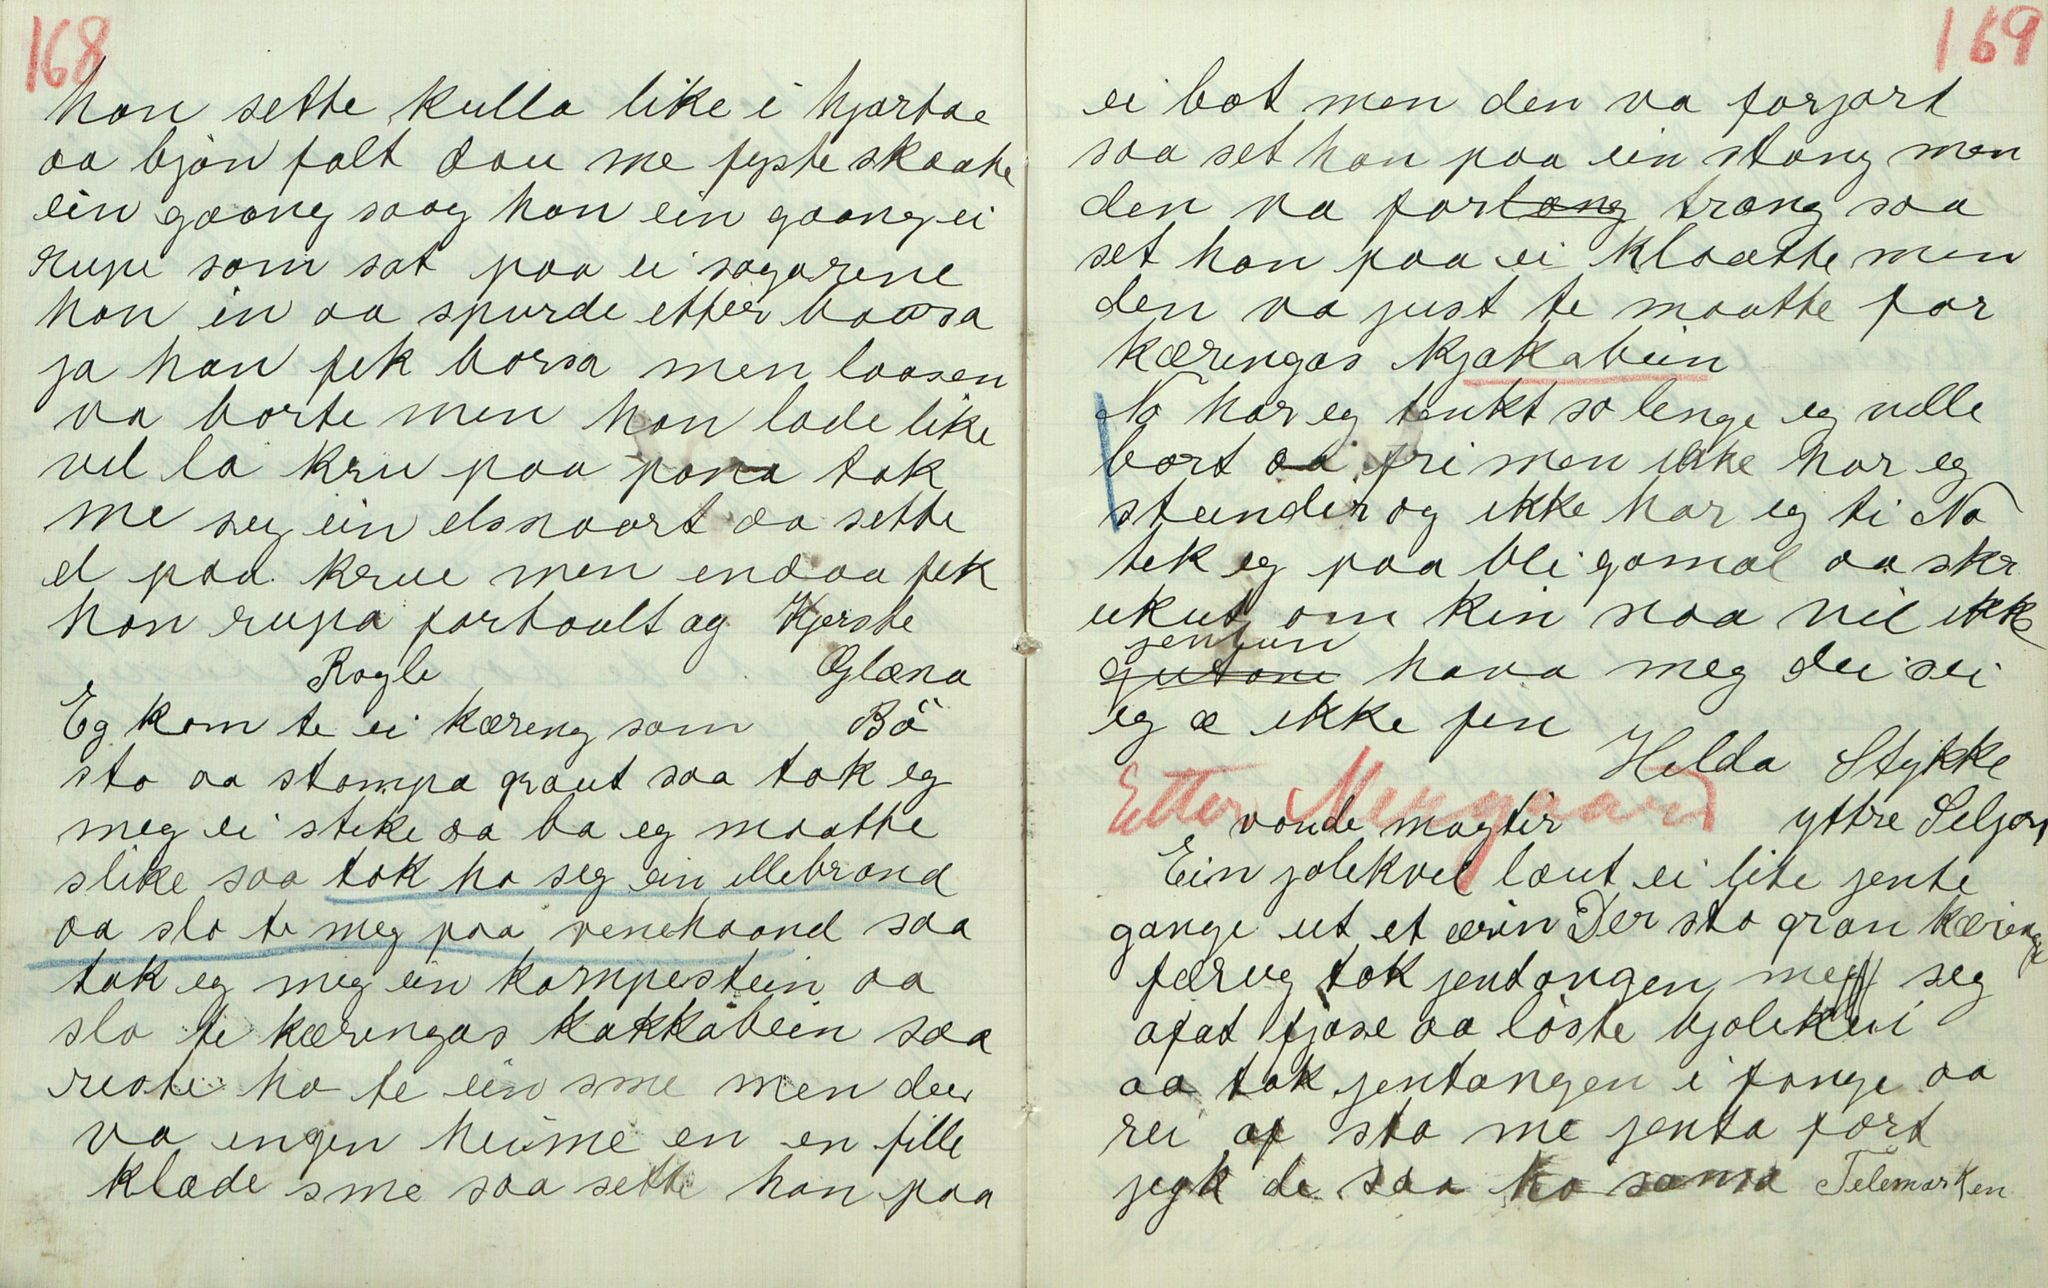 168
han sette kulla like i hjartae
aa bjøn falt dau me fyste skaate
ein gaang saag han ein gaang ei
rupe som sat paa ei sagarene
han in aa spurde etter baarsa
ja han fek borsa men laasen
va borte men han lade like
vel la kru paa pana tok
me seg ein elsnaart aa sette
el paa krue men endaa fek
han rupa fortoult ag Kjerste
Rogle Glæna
Eg kom te ei kæreng som Bö
sto aa stompa graut saa tok eg
meg ei steke aa ba eg maatte
slike saa tok ho seg ein ellebrand
aa slo te meg paa venehaand saa
tok eg meg ein kampestein aa
slo te kæringas kakkabein saa
reiste ho te ein sme men der
va engen heime en en fille
klæde sme saa sette han paa
169
ei bot men den va forjort
saa set han paa ein stong men
den va for long trang saa
set han paa ei klaatte men
den va just te maatte for
kæringas kjakabein
No har eg tenkt so lenge eg ville
bort aa fri men ikke har eg
stunder og ikke har eg ti No
tek eg paa bli gamal aa skr
ukut om kin naa vil ikke
jentun
gutane hava meg dei sei
eg æ ikke fin
Helda Stykke
Etter Mengaard
vonde magtir yttre Seljor
Ein jolekvel laut ei lite jente
gange ut et ærin Der sto gran kæringe
færug tok jentongen meff seg
afat fjøse aa løste bjolekui
aa tok jentongen i fange aa
rei af sta me jenta fort
jegk de saa ho sansa Telemarken